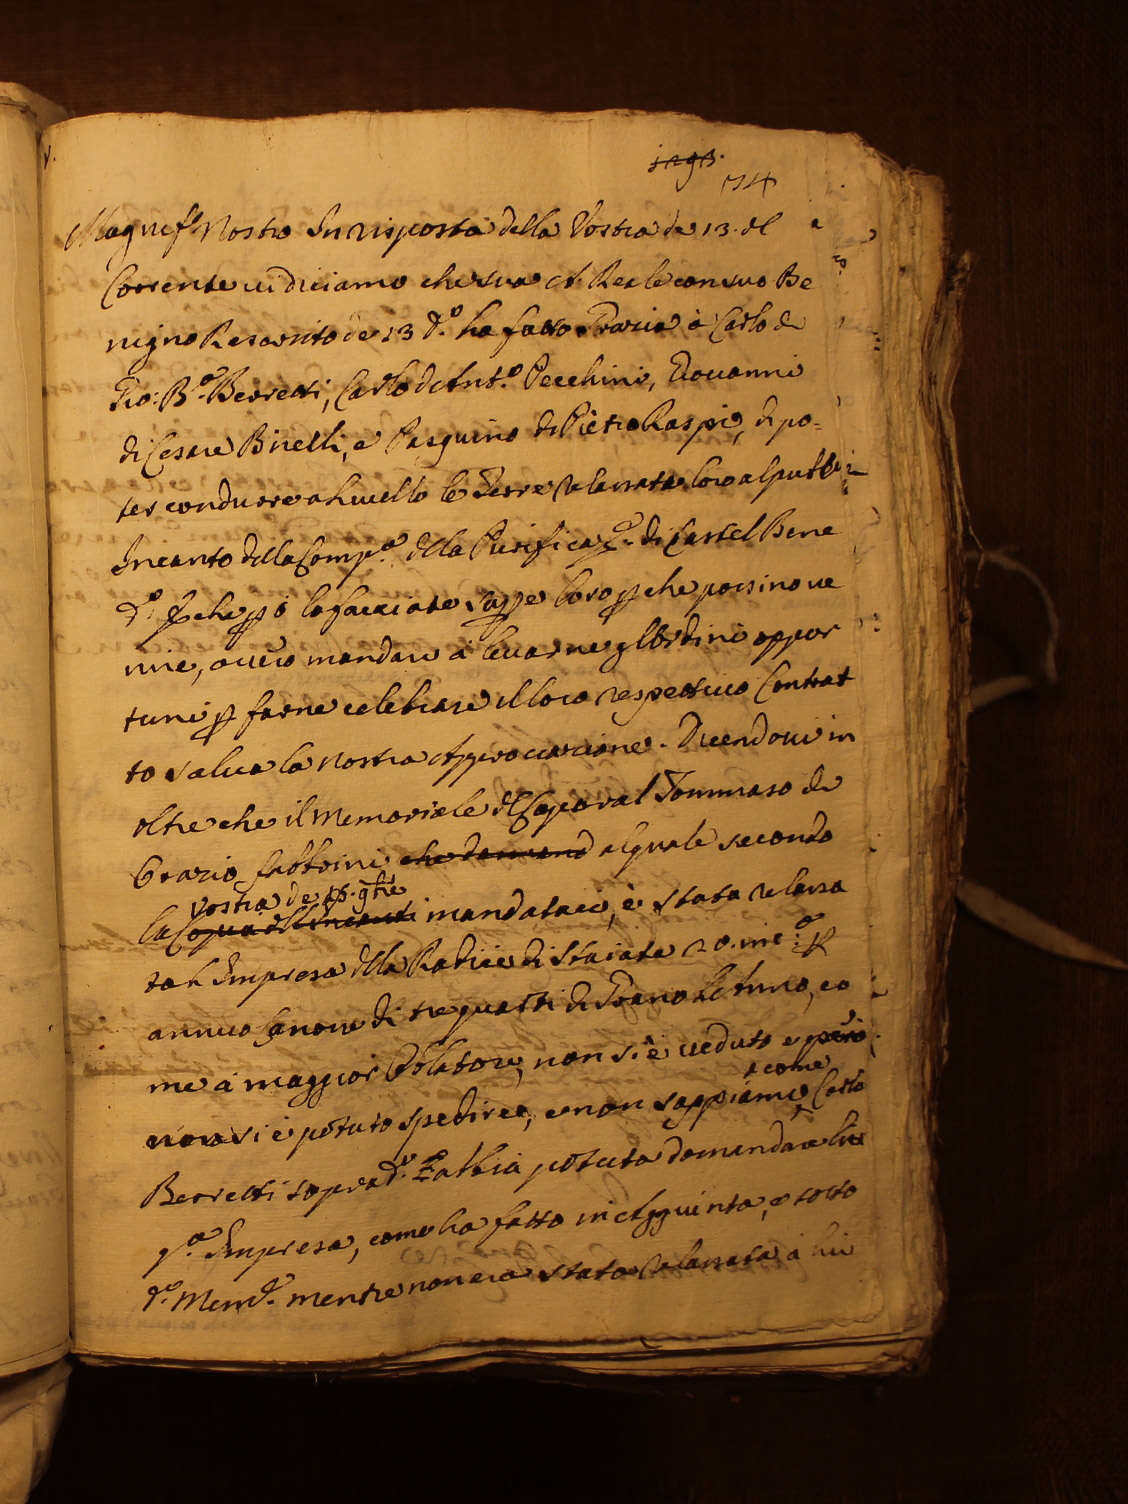 734
Magnif.o Nostro In risposta della Vostra de 13. del
Corrente vi diciamo che sua A. Reale con suo Be
nigno Rescritto de 13 d.o ha fatto Grazia à Carlo di
Gio: B.a Berretti, Carlo di Ant.o Pecchini, Giovanni
di Cesare Binelli, e Pasquino di Pietro Raspi, di po=
ter condurre a livello le Terre relassate loro al pubb:
Incanto della Comp.a della Purificaz.e di Castel Bene
d.o che però lo facciate saper loro perche possino ve
nire, o vero mandare à levarne gl'Ordini oppor
tuni per farne celebrare il loro respettivo Contrat
to salva la nostra Approvazione. Dicendovi in
oltre che il Memoriale del Caporal Tommaso di
Orazio Fabbrini che domand al quale secondo
vostra de 18. g.bre
la Copia dell'Incanti mandataci, è stata relassa
ta l'Impresa della Radice di Staiate 20. in c.a per
annuo Canone di tre quarti di Grano l'Anno, co
me à maggior Oblatore, non si è veduto e però
non si è potuto spedire, e non sappiamo Carlo
e come
Berretti soprad.o abbia potuto domandare
q.a Impresa, come ha fatto in Aggiunta, e sotto
d.o Mem.le mentre non era stata relassata à lui